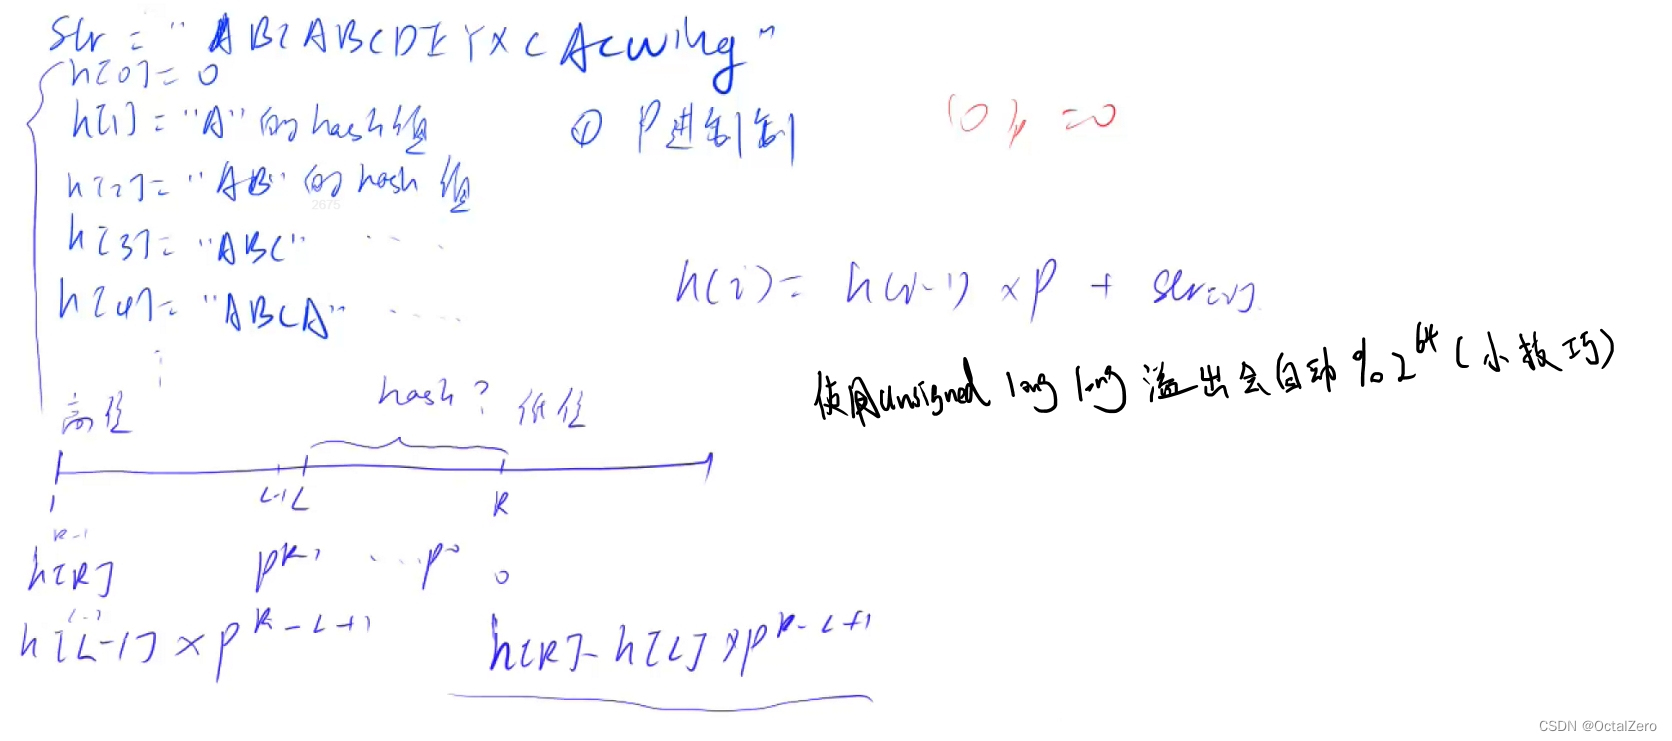 str = "ABCABCDEYXCAcwing"
h[0] = 0
h[1] = "A" 的 hash值
① P进制
(0)p = 0
h[2] = "AB" 的 hash 值
2675
h[3] = "ABC" ......
h(i) = h(i-1) × P + str[i]
h[4] = "ABCA" ......
使用unsigned long long 溢出会自动 % 2^64 (小技巧)
hash?
高位
低位
1 L-1 L R
R-1
h[R] p^R-1 ... p^0 0
L-1
h[L-1] × p^R-L+1
h[R] - h[L] × p^R-L+1
CSDN @OctalZero